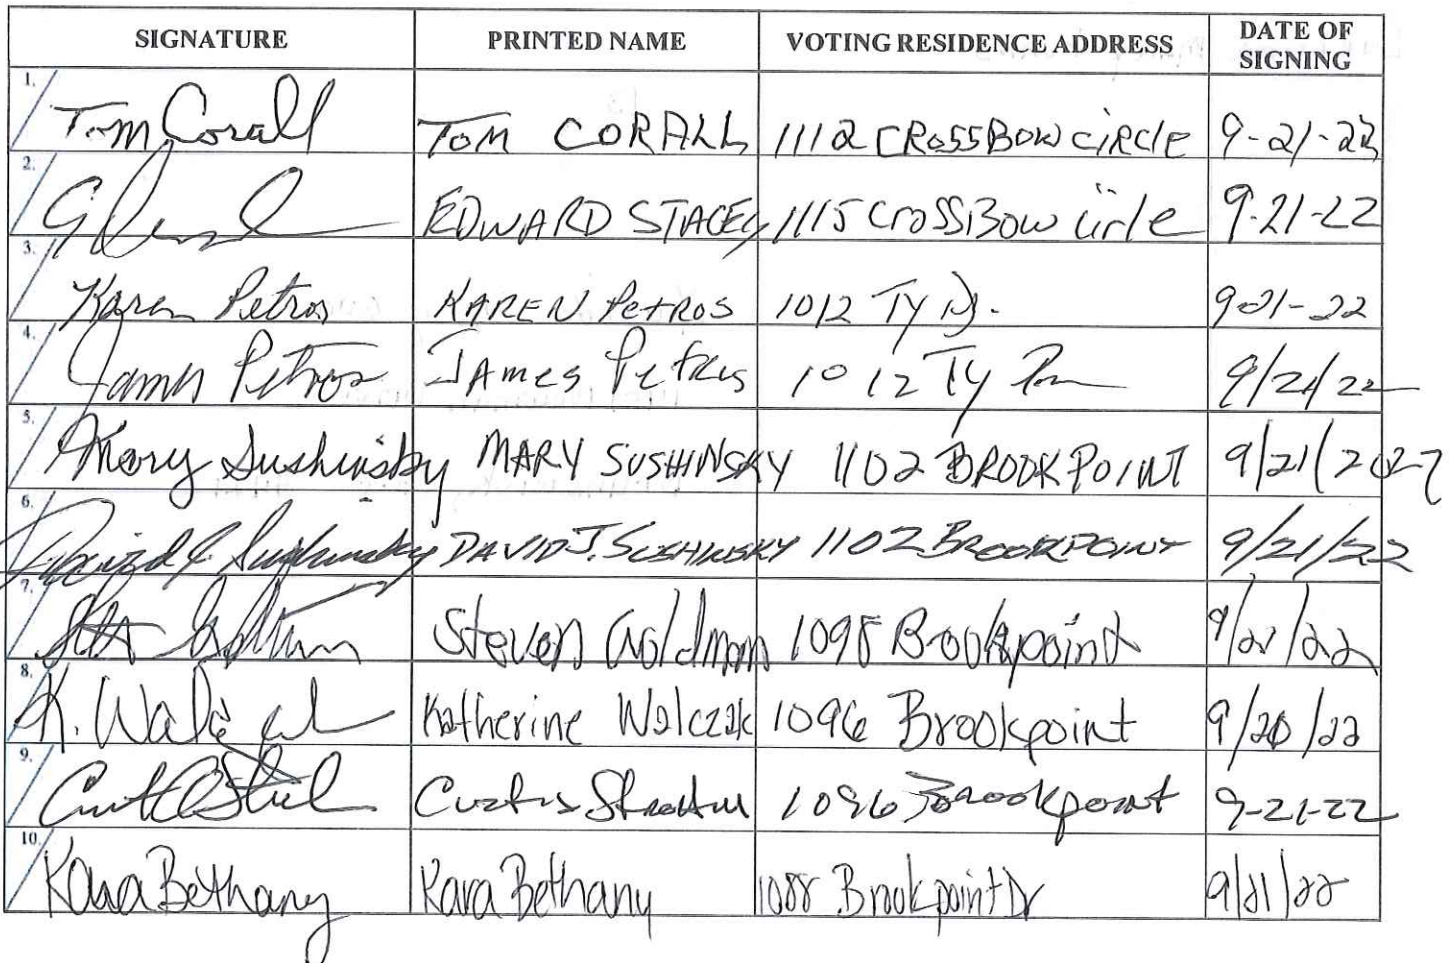 SIGNATURE PRINTED NAME VOTING RESIDENCE ADDRESS DATE OF SIGNING
1. Tom Corall TOM CORALL 1112 CROSSBOW CIRCLE 9-21-22
2. EDWARD STACEY 1115 CROSSBOW Circle 9-21-22
3. Karen Petros KAREN PETROS 1012 Ty Dr. 9-21-22
4. James Petros JAMES PETROS 1012 TY 9/21/22
5. Mary Sushinsky MARY SUSHINSKY 1102 BROOKPOINT 9/21/2022
6. David J. Sushinsky DAVID J. SUSHINSKY 1102 BROOKPOINT 9/21/22
7. Steven Goldman 1098 Brookpoint 9/21/22
8. K. Walczak Katherine Walczak 1096 Brookpoint 9/20/22
9. Curtis 1096 Brookpoint 9-21-22
10. Kara Bethany Kara Bethany 1088 Brookpoint Dr 9/21/22